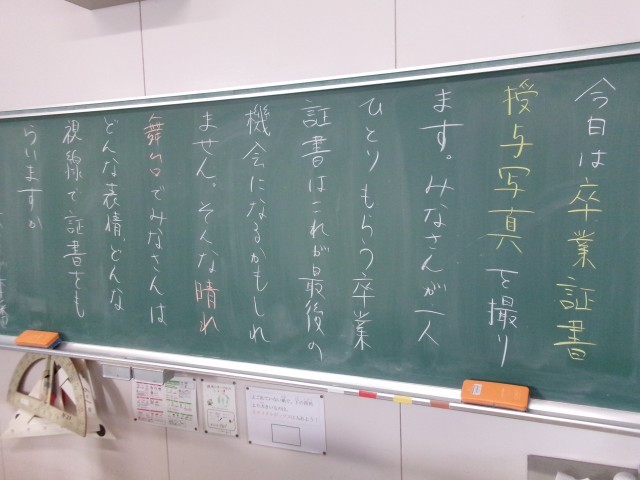 今日は卒業証書
授与写真を撮り
ます。みなさんが一人
ひとりもらう卒業
証書はこれが最後の
機会になるかもしれ
ません。そんな晴れ
舞台でみなさんは
どんな表情、どんな
視線で証書をも
らいますか